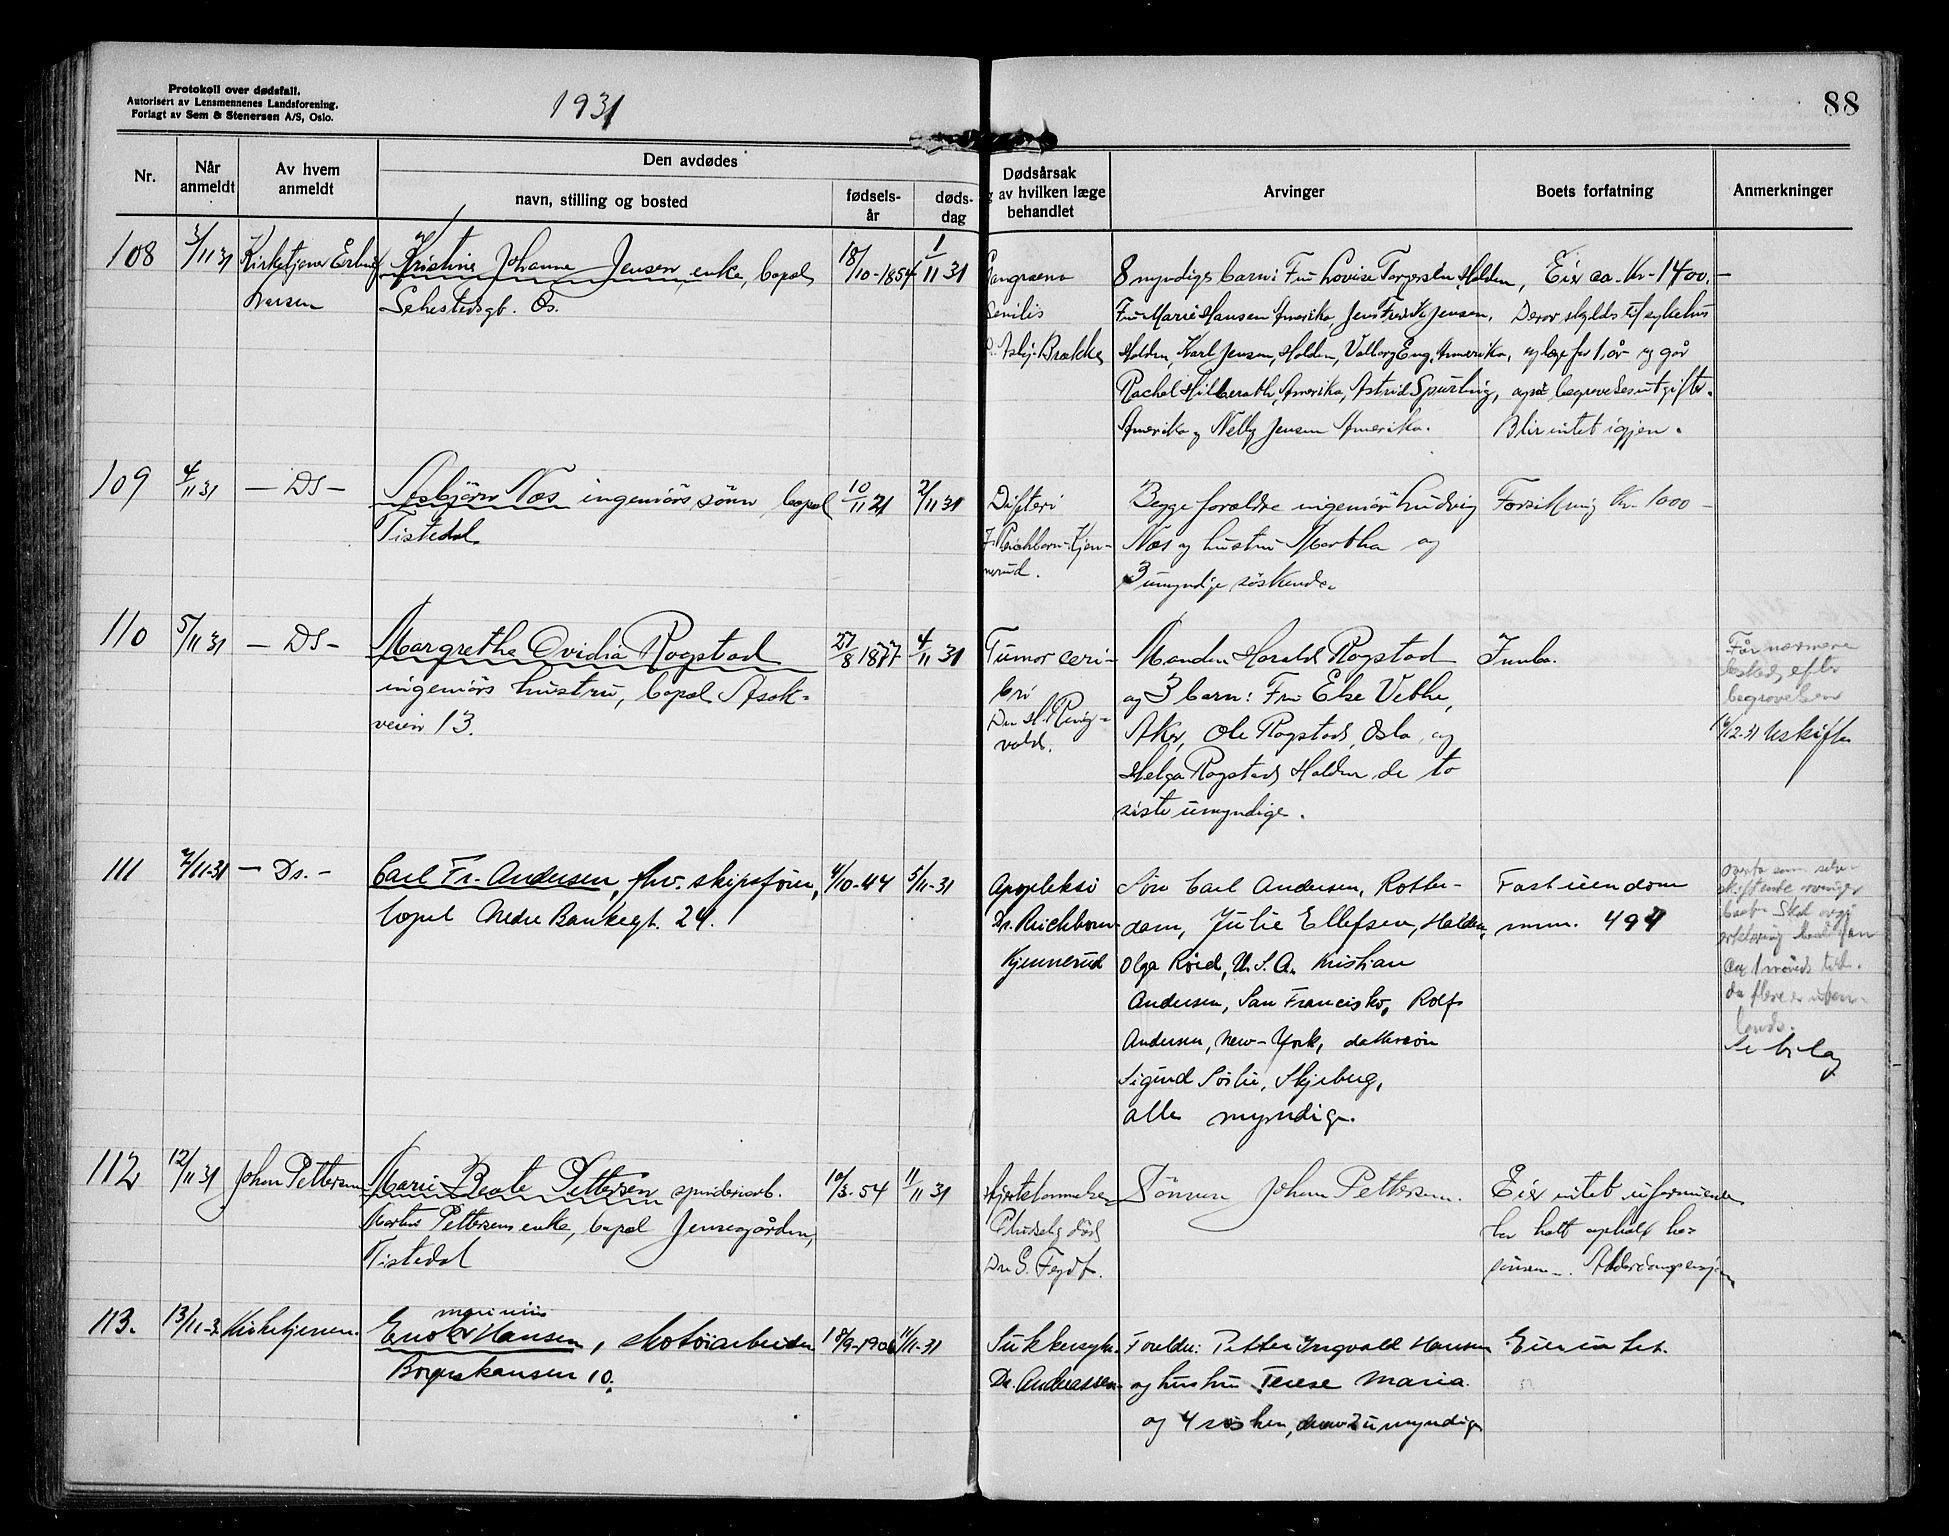 Protokoll over dødsfall.
Autorisert av Lensmennenes Landsforening.
Forlagt av Sem & Stenersen A/S, Oslo.
1931
88
Nr.
Når anmeldt
Av hvem anmeldt
Den avdødes
navn, stilling og bosted
fødsels-år
døds-dag
Dødsårsak
av hvilken læge
behandlet
Arvinger
Boets forfatning
Anmerkninger
108
3/11 31
Kirketjener
Larsen
Kristine Johanne Jensen, enke, bopel
Sehestedsgt. Øs.
18/10-1854
1/11 31
Gangræna
senilis
Brække
8 myndige barn: Fru Lovise Torgersen Halden,
Fru Marie Hansen Amerika, Jens Fredrik Jensen,
Halden, Karl Jensen, Halden, Valborg Eng, Amerika,
Rachel Hilberath, Amerika, Astrid Spurling,
Amerika og Nelly Jensen Amerika.
Eier ca. Kr. 1400.-
Derav skyldes til sykehus
og læge for 1 år og går
også begravelsesutgifter.
Blir intet igjen.
109
4/11 31
- Ds -
Asbjørn Næs ingeniørs sønn, bopel
Tistedal.
10/11 21
2/11 31
Difteri
Reichborn-Kjen-
nerud.
Begge forældre ingeniør Ludvig
Næs og hustru Martha og
3 umyndige søskende.
Forsikring Kr. 1000 -
110
5/11 31
- Ds -
Margrethe Ovidia Rogstad
ingeniørs hustru, bopel Asak-
veien 13.
27/8 1877
4/11 31
Tumor ceri-
bri
Dr. H. Ring-
vold.
Manden Harald Rogstad
og 3 barn: Fru Else Vethe,
Aker, Ole Rogstad, Oslo, og
Helga Rogstad, Halden de to
siste umyndige.
Innbo.
Får nærmere
beskjed efter
begravelsen
16/12-31 Uskifte
111
7/11-31
- Ds. -
Carl Fr. Andersen, fhv. skipsfører,
bopel Nedre Bankegt. 24.
4/10-44
5/11-31
Apopleksi
Dr. Reichborn-
Kjennerud
Sønn Carl Andersen, Rotter-
dam, Julie Ellefsen, Halden,
Olga Røed, U.S.A. Kristian
Andersen, San Francisko, Rolf
Andersen, New-York, dattersøn
Sigurd Sørlie, Skjeberg,
alle myndige.
Fast eiendom
num. 494
Overta som selv-
skiftende arvinger
boet. Skal avgi
erklæring
ca 1 måneds tid.
da flere er uten-
lands.
Se bilag
112
12/11 31
Johan Pettersen
Marie Beate Pettersen spinderiarb.
Martin Pettersens enke, bopel Jensegården,
Tistedal
10/3-54
11/11 31
Hjertelammelse
Pludselig død
Dr. G. Feydt.
Sønnen Johan Pettersen.
Eier intet uformuende
har hatt ophold hos
sønnen. Alderdomspensjon
113.
13/11-31
Kirketjeneren.
marinius
Enok Hansen, skotøiarbeider
Borgerskansen 10.
18/9-1906
11/11-31
Sukkersyke.
Dr. Andreassen
Foreldre: Petter Ingvald Hansen
og hustru Terese Maria
og 4 søsken, derav 2 umyndige
Eier intet.